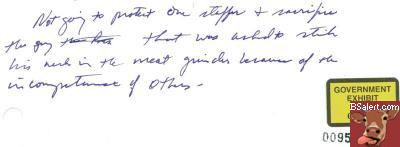 Not going to protect one staffer + sacrifice
the guy that was asked to stick
his neck in the meat grinder because of the
incompetence of others.
GOVERNMENT
EXHIBIT
BSalert.com
0095